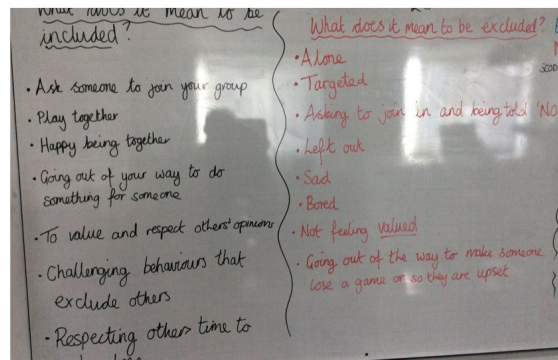 What does it mean to be
included?
• Ask someone to join your group
• Play together
• Happy being together
• Going out of your way to do
something for someone
• To value and respect others' opinions
• Challenging behaviours that
exclude others
• Respecting others time to
What does it mean to be excluded?
• Alone
• Targeted
• Asking to join in and being told 'No
• Left out
• Sad
• Bored
• Not feeling valued
• Going out of the way to make someone
lose a game or so they are upset